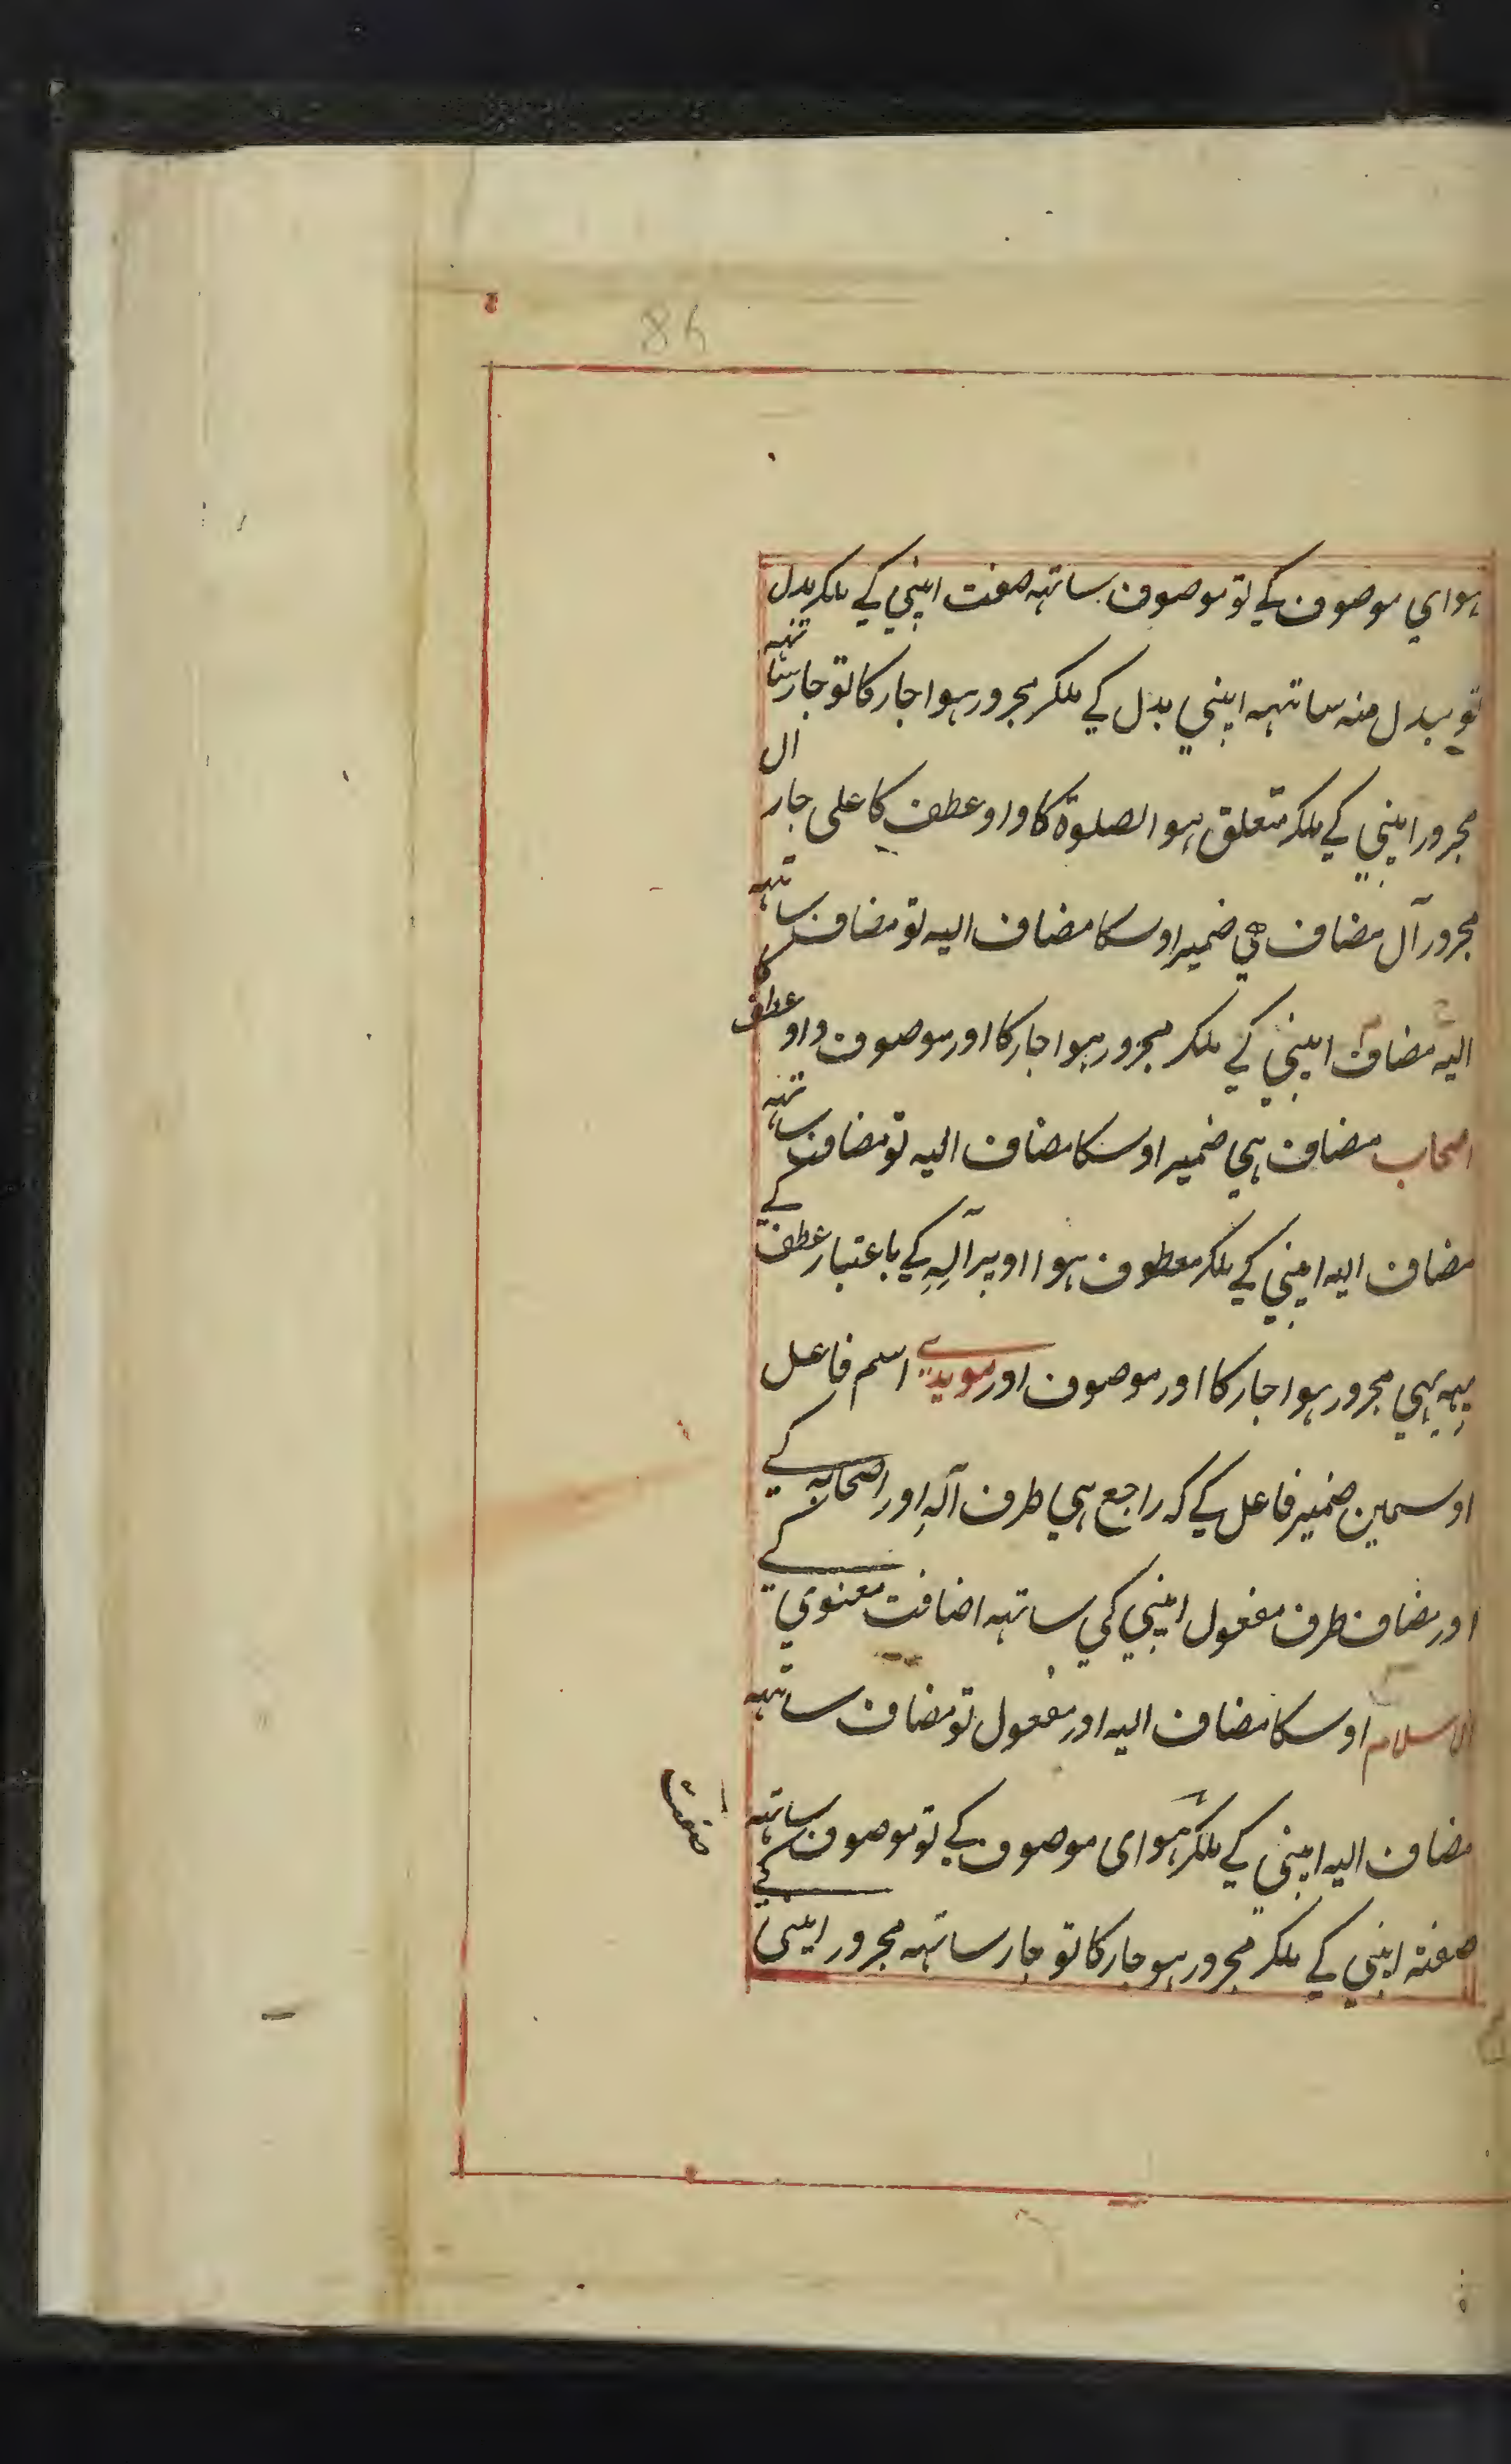 84
ہوای موصوف کے تو موصوف ساتہہ صفت اپنی کے ملکر بدل
تو مبدل منہ ساتہہ اپنی بدل کے ملکر مجرور ہوا جار کا تو جار ساتہہ
مجرور اپنی کے ملکر متعلق ہو الصلوۃ کا واو عطف کا علی جار ال
مجرور آل مضاف ہی ضمیر اوسکا مضاف الیہ تو مضاف ساتہہ
الیہ مضاف اپنی کے ملکر مجرور ہوا جار کا اور موصوف واو عطف کا
اصحاب مضاف ہی ضمیر اوسکا مضاف الیہ تو مضاف ساتہہ
مضاف الیہ اپنی کے ملکر معطوف ہوا اوپر آلِہِ کے باعتبار عطف کے
یہہ بہی مجرور ہوا جار کا اور موصوف اور مویدی اسم فاعل
اوسمین ضمیر فاعل کے کہ راجع ہی طرف آلہِ اور اصحابہ کے
اور مضاف طرف مفعول اپنی کی ساتہہ اضافت معنوی کے
الاسلام اوسکا مضاف الیہ اور مفعول تو مضاف ساتہہ
مضاف الیہ اپنی کے ملکر ہوای موصوف کے تو موصوف ساتہہ
صفتہ اپنی کے ملکر مجرور ہو جار کا تو جار ساتہہ مجرور اپنی کے
صفت